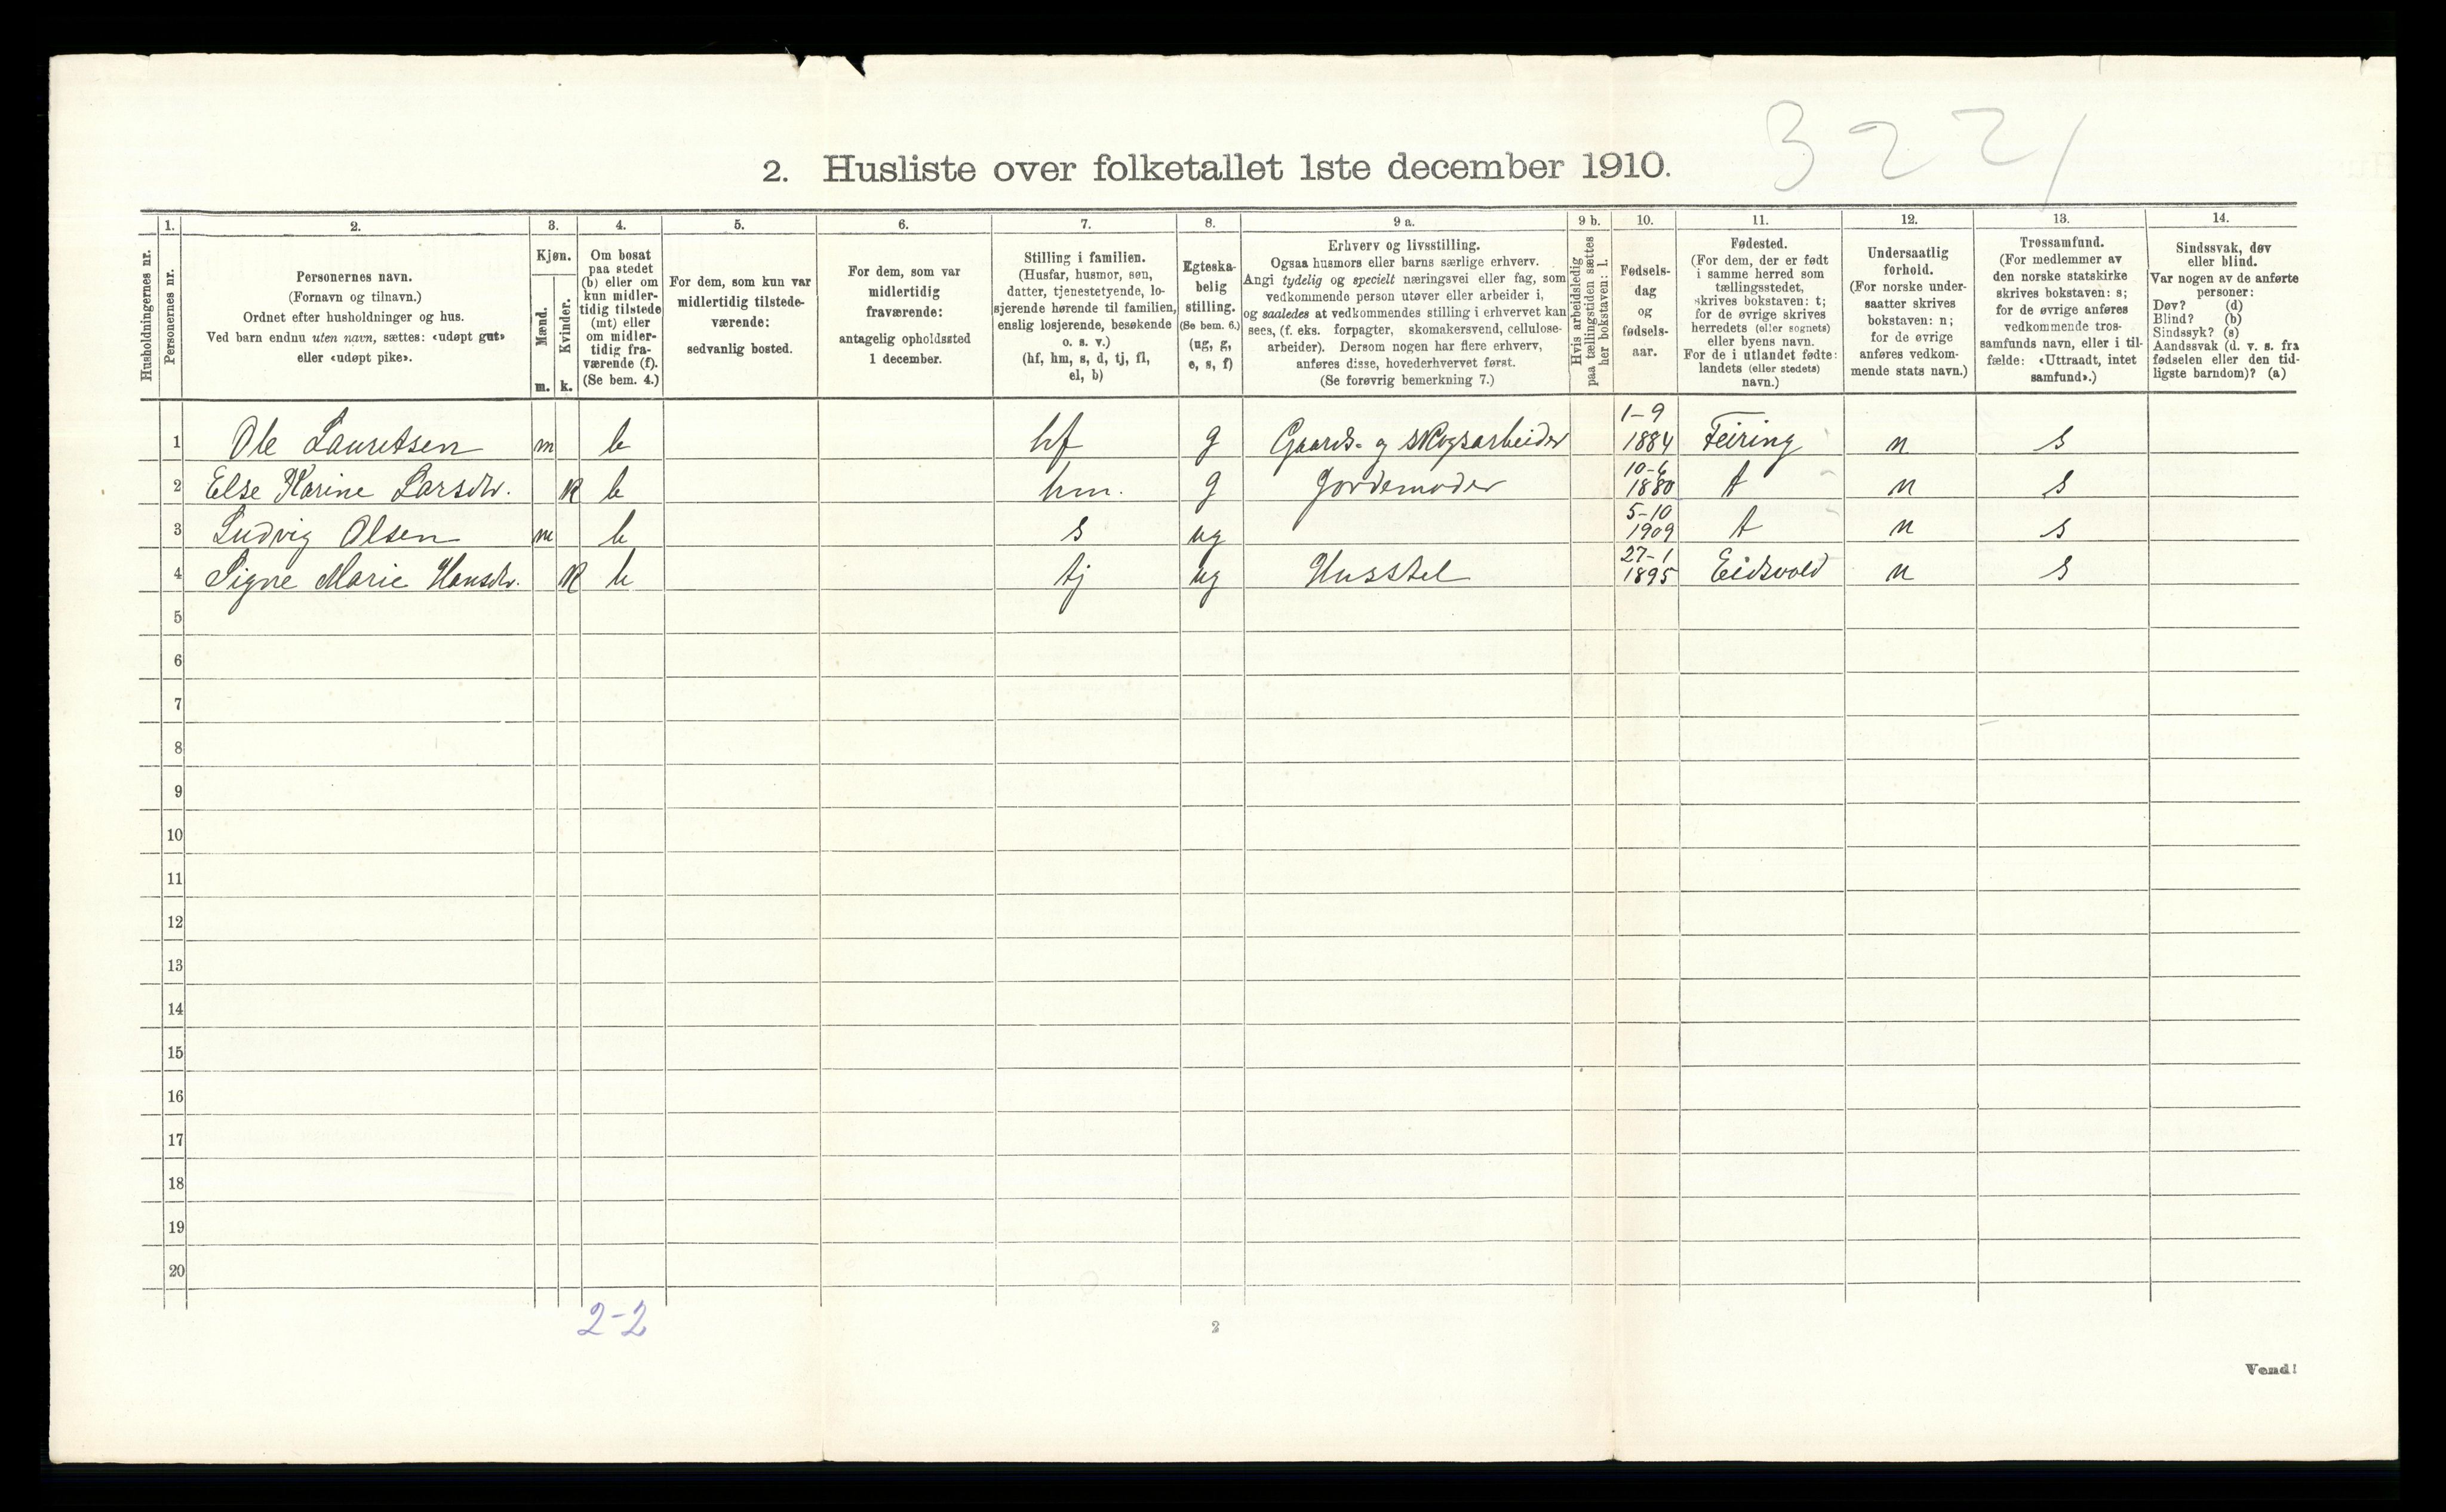 3221
2. Husliste over folketallet 1ste december 1910.
Husholdningernes nr.
1.
Personernes nr.
2.
Personernes navn.
(Fornavn og tilnavn.)
Ordnet efter husholdninger og hus.
Ved barn endnu uten navn, sættes: «udøpt gut»
eller «udøpt pike».
3.
Kjøn.
Mænd.
Kvinder.
m. k.
4.
Om bosat
paa stedet
(b) eller om
kun midler-
tidig tilstede
(mt) eller
om midler-
tidig fra-
værende (f).
(Se bem. 4.)
5.
For dem, som kun var
midlertidig tilstede-
værende:
sedvanlig bosted.
6.
For dem, som var
midlertidig
fraværende:
antagelig opholdssted
1 december.
7.
Stilling i familien.
(Husfar, husmor, søn,
datter, tjenestetyende, lo-
sjerende hørende til familien,
enslig losjerende, besøkende
o. s. v.)
(hf, hm, s, d, tj, fl,
el, b)
8.
Egteska-
belig
stilling.
(Se bem. 6.)
(ug, g,
e, s, f)
9 a.
Erhverv og livsstilling.
Ogsaa husmors eller barns særlige erhverv.
Angi tydelig og specielt næringsvei eller fag, som
vedkommende person utøver eller arbeider i,
og saaledes at vedkommendes stilling i erhvervet kan
sees, (f. eks. forpagter, skomakersvend, cellulose-
arbeider). Dersom nogen har flere erhverv,
anføres disse, hovederhvervet først.
(Se forøvrig bemerkning 7.)
9 b.
Hvis arbeidsledig
paa tællingstiden sættes
her bokstaven: l.
10.
Fødsels-
dag
og
fødsels-
aar.
11.
Fødested.
(For dem, der er født
i samme herred som
tællingsstedet,
skrives bokstaven: t;
for de øvrige skrives
herredets (eller sognets)
eller byens navn.
For de i utlandet fødte:
landets (eller stedets)
navn.)
12.
Undersaatlig
forhold.
(For norske under-
saatter skrives
bokstaven: n;
for de øvrige
anføres vedkom-
mende stats navn.)
13.
Trossamfund.
(For medlemmer av
den norske statskirke
skrives bokstaven: s;
for de øvrige anføres
vedkommende tros-
samfunds navn, eller i til-
fælde: «Uttraadt, intet
samfund».)
14.
Sindssvak, døv
eller blind.
Var nogen av de anførte
personer:
Døv? (d)
Blind? (b)
Sindssyk? (s)
Aandssvak (d. v. s. fra
fødselen eller den tid-
ligste barndom)? (a)
1 Ole Lauritsen m b hf g Gaards- og skogsarbeider 1-9 1884 Feiring n s
2 Else Karine Larsdtr. k b hm. g Jordemoder 10-6 1880 t n s
3 Ludvig Olsen m b s ug 5-10 1909 t n s
4 Signe Marie Hansdtr. k b tj ug Husstel 27-1 1895 Eidsvold n s
5
6
7
8
9
10
11
12
13
14
15
16
17
18
19
20
2-2
2
Vend!